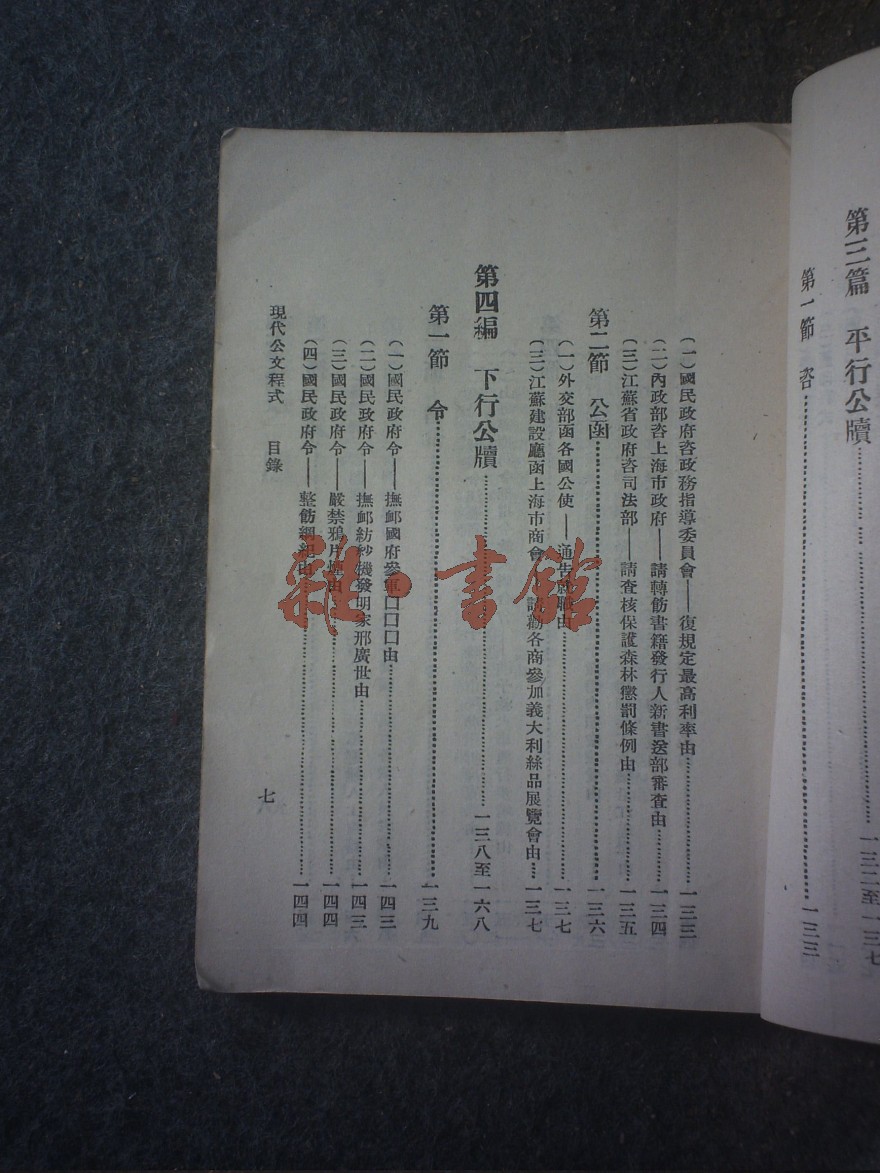 第三篇 平行公牘……一三二至一三七
第一節 咨……一三三
(一)國民政府咨政務指導委員會——復規定最高利率由……一三三
(二)內政部咨上海市政府——請轉飭書籍發行人新書送部審査由……一三四
(三)江蘇省政府咨司法部——請査核保護森林懲罰條例由……一三五
第二節 公函……一三六
(一)外交部函各國公使——通告就職由……一三七
(三)江蘇建設廳函上海市商會——請勸各商參加義大利絲品展覽會由……一三七
第四編 下行公牘……一三八至一六八
第一節 令……一三九
(一)國民政府令——撫卹國府參軍口口口由……一四三
(二)國民政府令——撫卹紡紗機發明家邢廣世由……一四三
(三)國民政府令——嚴禁鴉片煙由……一四四
(四)國民政府令——整飭綱紀由……一四四
現代公文程式 目錄
七
雜·書館